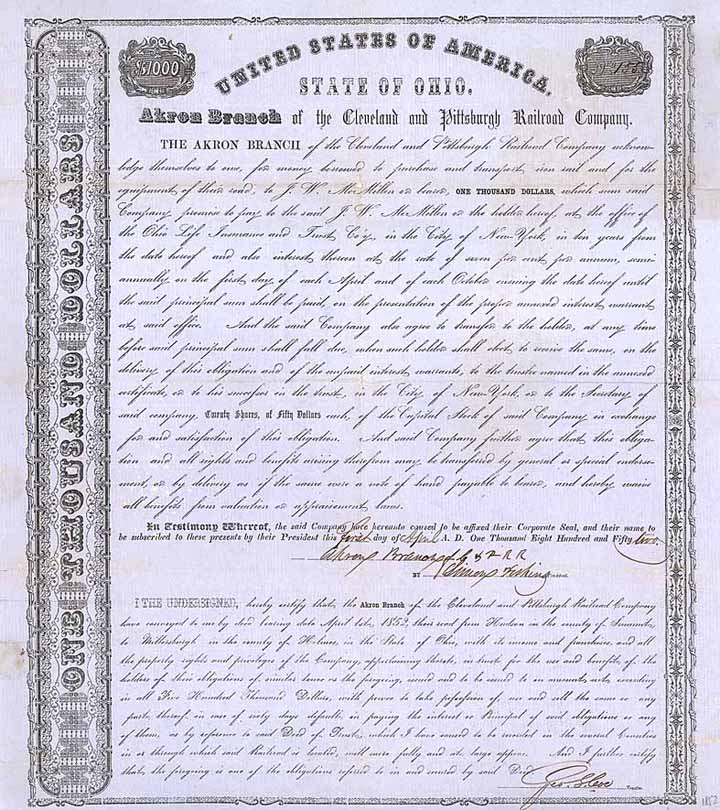 $1000
UNITED STATES OF AMERICA.
STATE OF OHIO.
Akron Branch of the Cleveland and Pittsburgh Railroad Company.
THE AKRON BRANCH of the Cleveland and Pittsburgh Railroad Company acknow-
ledge themselves to owe, for money borrowed to purchase and transport iron rail and for the
equipment of their road, to J. W. McMillen or bearer, ONE THOUSAND DOLLARS, which sum said
Company promise to pay to the said J. W. McMillen or the holder hereof, at the office of
the Ohio Life Insurance and Trust Co'y, in the City of New-York, in ten years from
the date hereof and also interest thereon at the rate of seven per cent per annum, semi
annually on the first day of each April and of each October ensuing the date hereof until
the said principal sum shall be paid, on the presentation of the proper annexed interest warrant
at said office. And the said Company also agree to transfer to the holder, at any time
before said principal sum shall fall due, when such holder shall elect to receive the same, on the
delivery of this obligation and of the unpaid interest warrants, to the trustee named in the annexed
certificate, or to his successor in the trust, in the City of New-York, or to the Secretary of
said company, Twenty Shares, of Fifty Dollars each, of the Capital Stock of said Company in exchange
for and satisfaction of this obligation. And said Company further agree that this obliga-
tion and all rights and benefits arising therefrom may be transferred by general or special endorse-
ment, or by delivery as if the same were a note of hand payable to bearer, and hereby waive
all benefits from valuation or appraisement laws.
In Testimony Whereof, the said Company have hereunto caused to be affixed their Corporate Seal, and their name to
be subscribed to these presents by their President this first day of April A. D. One Thousand Eight Hundred and Fifty two.
Akron Branch of C & P R R
BY Simon Perkins
I THE UNDERSIGNED, hereby certify that, the Akron Branch of the Cleveland and Pittsburgh Railroad Company
have conveyed to me by deed bearing date April 1st, 1852, their road from Hudson in the county of Summit,
to Millersburgh in the county of Holmes, in the State of Ohio, with its income and franchises, and all
the property rights and privileges of the Company, appertaining thereto, in trust for the use and benefit of the
holders of their obligations of similar tenor as the foregoing, issued and to be issued to an amount not exceeding
in all Five Hundred Thousand Dollars, with power to take possession of use and sell the same or any
part thereof in case of sixty days default, in paying the interest or Principal of said obligations or any
of them, as by reference to said Deed of Trust, which I have caused to be recorded in the several Counties
in or through which said Railroad is located, will more fully and at large appear. And I further certify
that the foregoing is one of the obligations referred to in and secured by said Deed.
Trustee
ONE THOUSAND DOLLARS